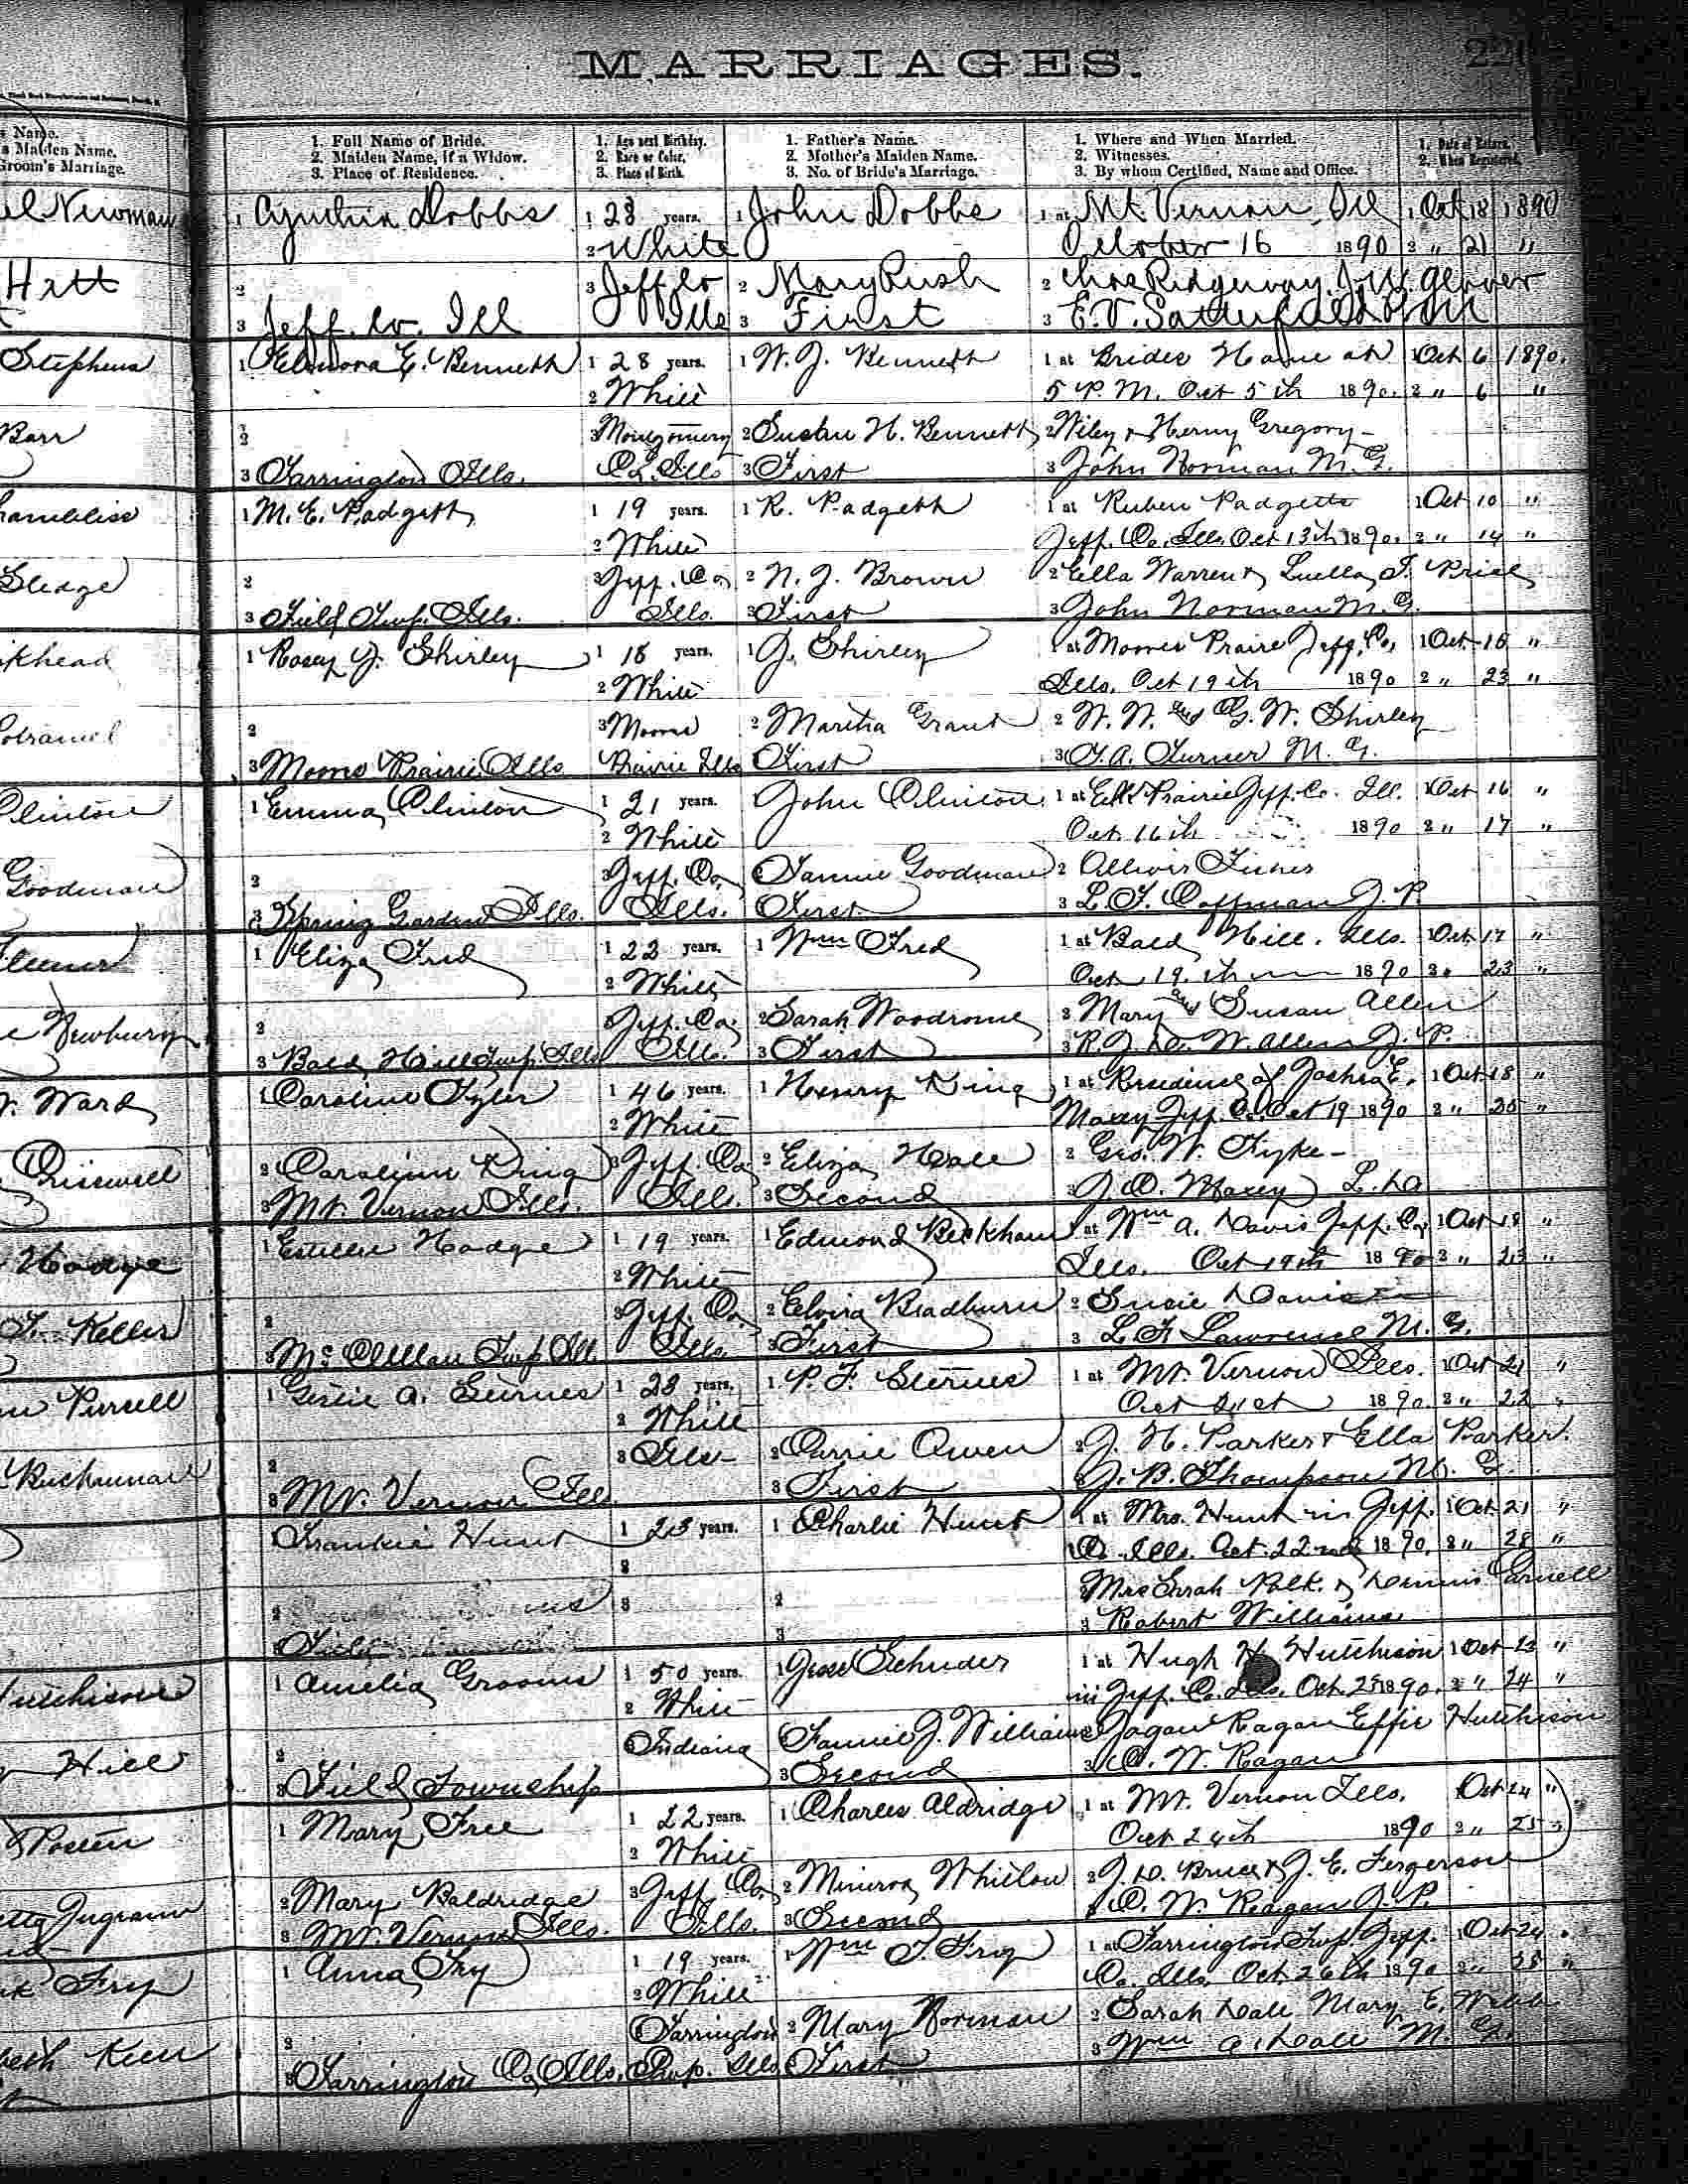 MARRIAGES.
s Name.
s Maiden Name.
Groom's Marriage.
1. Full Name of Bride.
2. Maiden Name, if a Widow.
3. Place of Residence.
1. Age next Birthday.
2. Race or Color.
3. Place of Birth.
1. Father's Name.
2. Mother's Maiden Name.
3. No. of Bride's Marriage.
1. Where and When Married.
2. Witnesses.
3. By whom Certified, Name and Office.
1. Date of Return.
2. When Registered.
Newman 1 Cynthia Dobbs 1 28 years. 1 John Dobbs 1 at Mt. Vernon, Ill 1 Oct 18 1890
2 White October 16 1890 2 " 21 "
Hitt 2 3 Jeff Co 2 Mary Rush 2 Chas Ridgeway J. W. Glover
3 Jeff. Co. Ill Ills 3 First 3 E. V. Satterfield
Stephens 1 Elenora E. Bennett 1 28 years. 1 W. J. Bennett 1 at Brides Home at 1 Oct 6 1890.
2 White 5 P. M. Oct 5th 1890. 2 " 6 "
Barr 2 3 Montgomery 2 Susan H. Bennett 2 Wiley & Henry Gregory
3 Farrington Ills. Co. Ills 3 First 3 John Norman M. G.
1 M. E. Padgett 1 19 years. 1 R. Padgett 1 at Ruben Padgetts 1 Oct 10 "
2 White Jeff. Co. Ills. Oct 13th 1890. 2 " 14 "
Sledge 2 3 Jeff. Co. 2 N. J. Brown 2 Ella Warren & Luella J. Price
3 Field Twp. Ills. Ills. 3 First 3 John Norman M. G.
khead 1 Rosey J. Shirley 1 18 years. 1 J. Shirley 1 at Moores Praire Jeff. Co, 1 Oct 16 "
2 White Ills. Oct 19th 1890 2 " 23 "
2 3 Moores 2 Martha Grant 2 W. W. and G. W. Shirley
3 Moores Prairie Ills Prairie Ills First 3 T. A. Turner M. G.
Clinton 1 Emma Clinton 1 21 years. John Clinton 1 at Elk Prairie Jeff. Co. Ill. 1 Oct 16 "
2 White Oct. 16th 1890 2 " 17 "
Goodman 2 3 Jeff. Co. Fannie Goodman 2 Fisher
3 Spring Garden Ills. Ills. First 3 L. F. Coffman J. P.
1 Eliza Fred 1 22 years. 1 Wm Fred 1 at Bald Hill. Ills. 1 Oct 17 "
2 White Oct 19th 1890 2 23 "
Newbury 2 3 Jeff. Co. 2 Sarah Woodrome 2 Mary and Susan Allen
3 Bald Hill Twp. Ills Ills. 3 First 3 W. Allen J. P.
Ward 1 Caroline Tyler 1 46 years. 1 Henry King 1 at Residence of Joshua E. 1 Oct 18 "
2 White Maxey Jeff. Co. Oct 19 1890 2 " 25 "
Criswell 2 Carolinn King 3 Jeff. Co 2 Eliza Hale 2 Geo. W. Fyke
3 Mt. Vernon Ills. Ills. 3 Second 3 J. C. Maxey
Hodge 1 Estelle Hodge 1 19 years. 1 Edmond Beckham 1 at Wm A. Davis Jeff. Co 1 Oct 18 "
2 White Ills. Oct 19th 1890 2 " 23 "
Keller 2 3 Jeff. Co 2 Elvira Bradburn 2 Susie Davis
3 McClellan Twp Ill. Ills. 3 First 3 L. F. Lawrence M. G.
Pursell 1 A. 1 28 years. 1 P. F. 1 at Mt. Vernon Ills. 1 Oct 21 "
2 White Oct 21st 1890. 2 " 22 "
Buchannan 2 3 Ills 2 Carrie Owen 2 J. H. Parker & Ella Parker.
3 Mt. Vernon Ill 3 First 3 J. B. Thompson M. G.
Frankie Hunt 1 23 years. 1 Charlie Hunt 1 at Mrs. Hunt in Jeff. 1 Oct 21 "
2 Co. Ills. Oct. 22nd 1890. 2 " 28 "
2 3 2 2 Mrs Sarah Polk. & Dennis
3 Field 3 3 Robert Williams
Hutchison 1 Amelia Grooms 1 50 years. 1 Jesse 1 at Hugh H. Hutchison 1 Oct 23 "
2 White in Jeff. Co. Ills. Oct. 23 1890. 2 " 24 "
Hill 2 Indiana Fannie J. Williams Ragan Effie Hutchison
3 Field Township 3 Second 3 C. W. Ragan
Posten 1 Mary Free 1 22 years. 1 Charles Aldridge 1 at Mt. Vernon Ills. Oct 24 "
2 White Oct 24th 1890 2 " 25 "
Ingram 2 Mary Baldridge 3 Jeff. Co. 2 Minerva Whitlow 2 J. D. Bruce & J. E. Fergerson
3 Mt. Vernon Ills. Ills. 3 Second C. W. Reagan J. P.
Fry 1 Anna Fry 1 19 years. 1 Wm T. Fry 1 at Farrington Twp Jeff. 1 Oct 24
2 White Co. Ills. Oct. 26th 1890 2 " 28 "
Keen 2 Farrington 2 Mary Norman 2 Sarah Dale Mary E. Webb
3 Farrington Co Ills. Twp. Ills First 3 Wm A. Dale M. G.